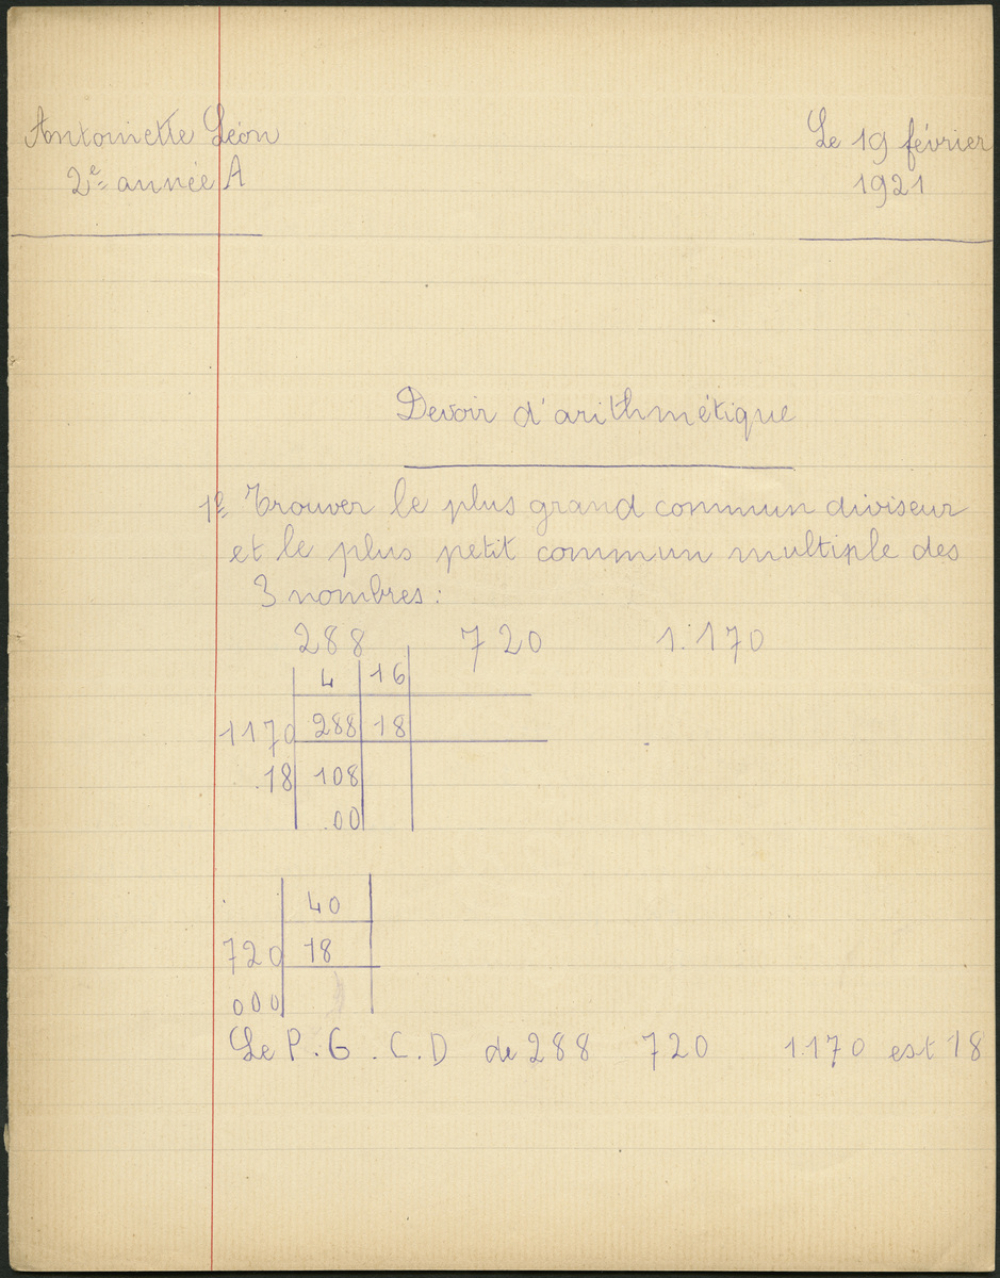 Antoinette Léon
Le 19 février
2e année A
1921
Devoir d'arithmétique
1º Trouver le plus grand commun diviseur
et le plus petit commun multiple des
3 nombres:
288 720 1.170
4 16
1170 288 18
.18 108
.00
40
720 18
000
Le P.G.C.D de 288 720 1170 est 18